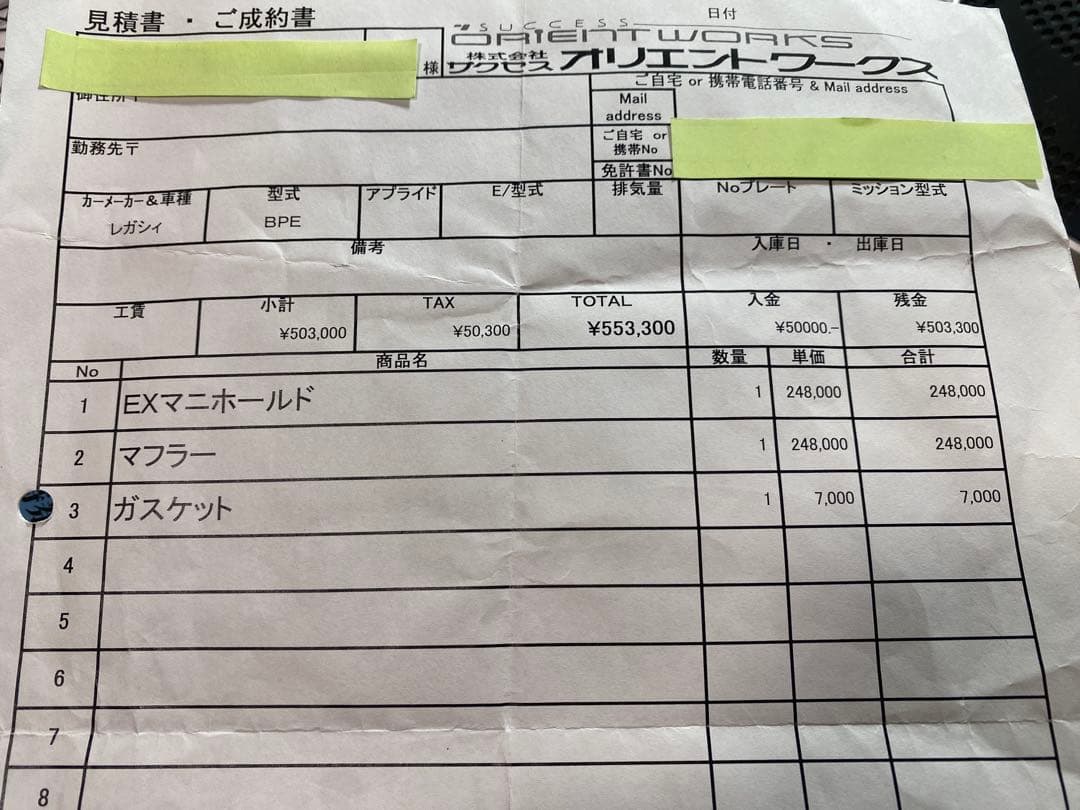 見積書 ・ ご成約書
日付
SUCCESS
ORIENT WORKS
様
株式会社
サクセス オリエントワークス
ご自宅 or 携帯電話番号 & Mail address
御住所〒
Mail
address
勤務先〒
ご自宅 or
携帯No
免許書No
カーメーカー&車種
型式
アプライド
E/型式
排気量
Noプレート
ミッション型式
レガシィ
BPE
備考
入庫日 ・ 出庫日
工賃
小計
TAX
TOTAL
入金
残金
¥503,000
¥50,300
¥553,300
¥50000.-
¥503,300
No
商品名
数量
単価
合計
1 EXマニホールド 1 248,000 248,000
2 マフラー 1 248,000 248,000
3 ガスケット 1 7,000 7,000
4
5
6
7
8